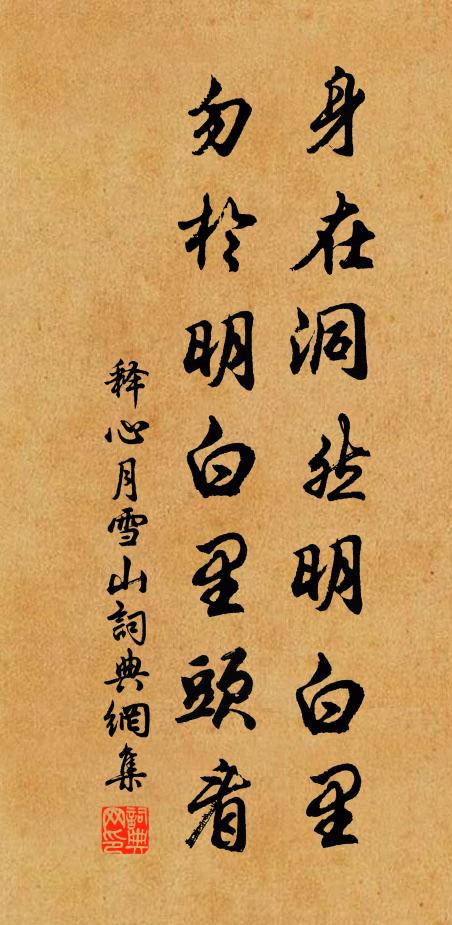 身在洞然明白里
勿於明白里頭看
释心月雪山詞典網集
詞典
网印